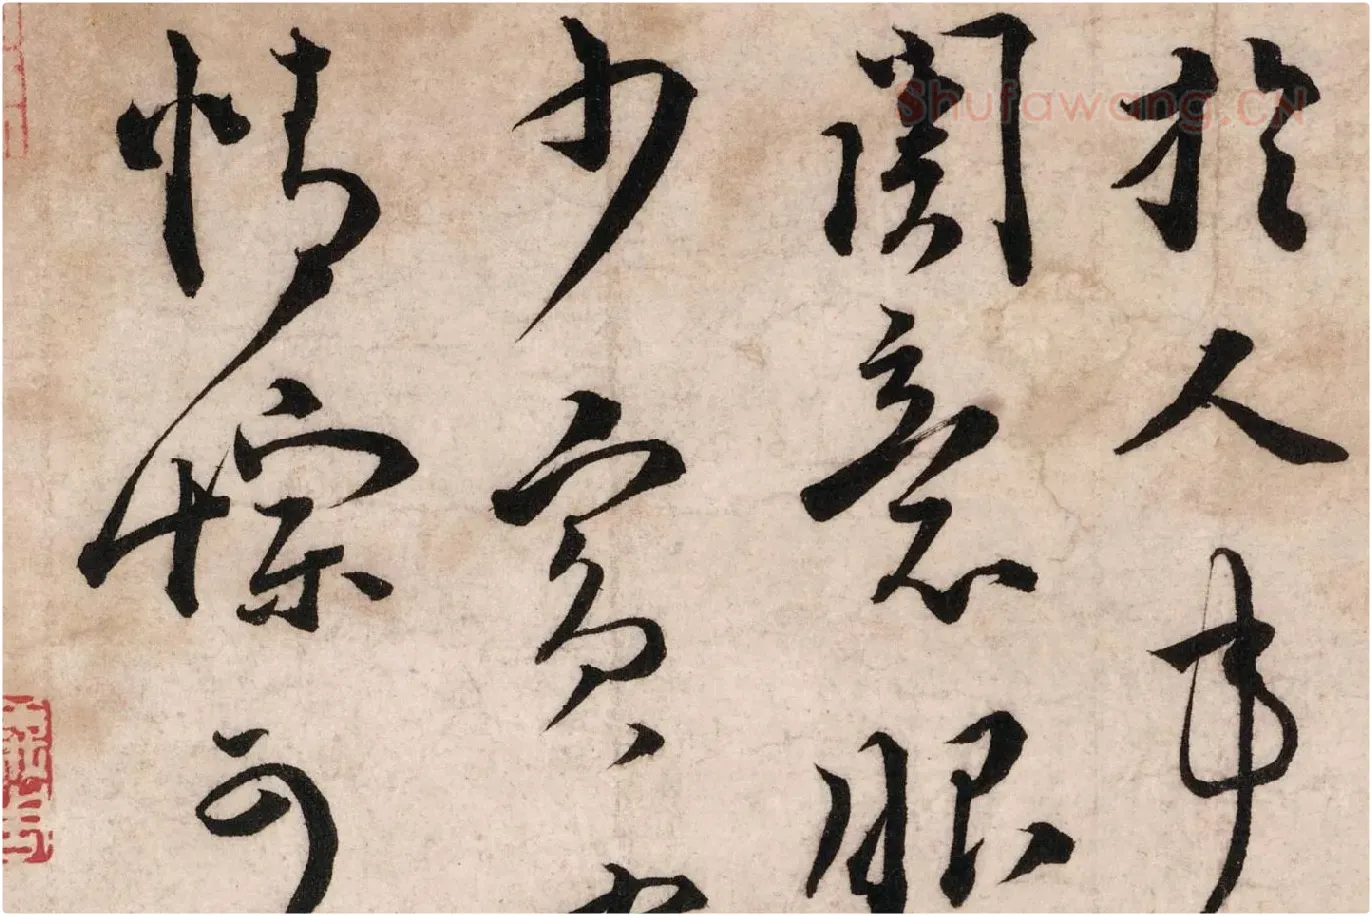 於人事
關意眼
少賓
情悰可
Shufawang.CN